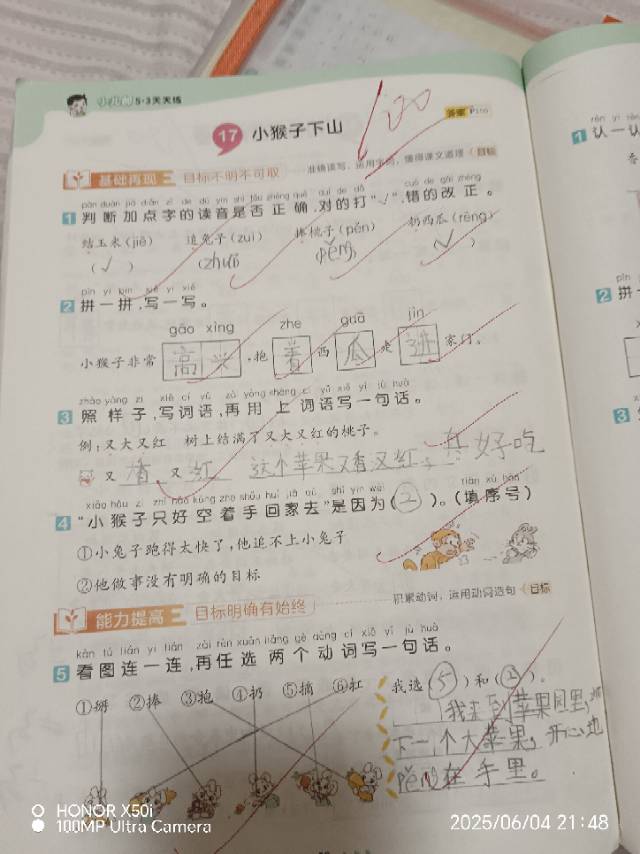 小儿郎 5·3天天练
100
答案 P110
17 小猴子下山
基础再现 目标不明不可取 准确读写,运用字词,懂得课文道理 目标
pàn duàn jiā diǎn zì de dú yīn shì fǒu zhèng què duì de dǎ cuò de gǎi zhèng
1 判断加点字的读音是否正确,对的打“√”,错的改正。
结玉米(jiē) 追兔子(zuī) 捧桃子(pén) 扔西瓜(rēng)
(√) (zhuī pěng √)
pīn yi pīn xiě yi xiě
2 拼一拼,写一写。
gāo xìng zhe guā jìn
小猴子非常 高兴,抱 着 西 瓜 走 进 家门。
zhào yàng zi xiě cí yǔ zài yòng shàng cí yǔ xiě yí jù huà
3 照样子,写词语,再用上词语写一句话。
例:又大又红 树上结满了又大又红的桃子。
又 香 又 红 这个苹果又香又红, 好吃
xiǎo hóu zi zhǐ hǎo kōng zhe shǒu huí jiā qù shì yīn wèi tián xù hào
4 “小猴子只好空着手回家去”是因为(2)。(填序号)
①小兔子跑得太快了,他追不上小兔子
②他做事没有明确的目标
能力提高 目标明确有始终 积累动词,运用动词造句 目标
kàn tú lián yi lián zài rèn xuǎn liǎng gè dòng cí xiě yí jù huà
5 看图连一连,再任选两个动词写一句话。
①掰 ②捧 ③抱 ④扔 ⑤摘 ⑥扛 我选(5)和(2)。
我来到苹果园里,摘
下一个大苹果,开心地
pěng在手里。
rèn yi rèn
1 认一认
pīn
2 拼一
3
HONOR X50i
100MP Ultra Camera
2025/06/04 21:48